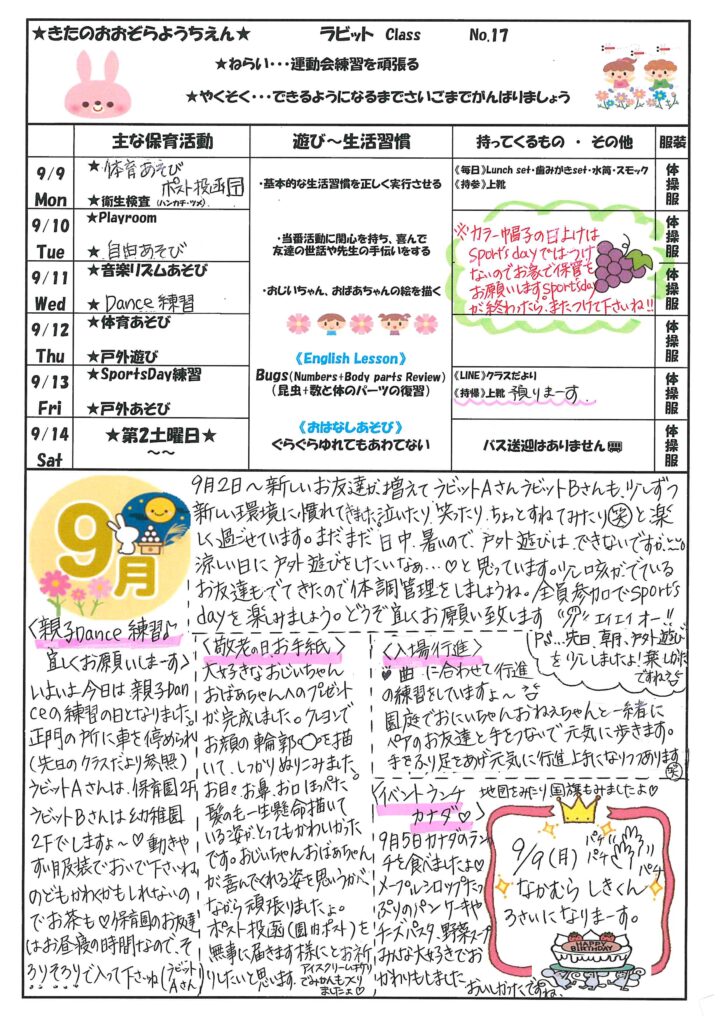 ★きたのおおぞらようちえん★ ラビット Class No.17
★ねらい・・・運動会練習を頑張る
★やくそく・・・できるようになるまでさいごまでがんばりましょう
主な保育活動 遊び～生活習慣 持ってくるもの ・ その他 服装
9/9 Mon
★体育あそび
ポスト投函
★衛生検査(ハンカチ・ツメ)
・基本的な生活習慣を正しく実行させる
《毎日》Lunch set・歯みがきset・水筒・スモック
《持参》上靴
体操服
9/10 Tue
★Playroom
★自由あそび
・当番活動に関心を持ち、喜んで
友達の世話や先生の手伝いをする
※カラー帽子の日よけは
sport's dayではつけ
ないのでお家で保管を
お願いしますsportsday
が終わったら、またつけて下さいね!!
体操服
9/11 Wed
★音楽リズムあそび
★Dance練習
・おじいちゃん、おばあちゃんの絵を描く
体操服
9/12 Thu
★体育あそび
★戸外遊び
《English Lesson》
体操服
9/13 Fri
★SportsDay練習
★戸外あそび
Bugs(Numbers+Body parts Review)
(昆虫+数と体のパーツの復習)
《LINE》クラスだより
《持帰》上靴 預りまーす
体操服
9/14 Sat
★第2土曜日★
～～
《おはなしあそび》
ぐらぐらゆれてもあわてない
バス送迎はありません
体操服
9月
9月2日～新しいお友達が増えてラビットAさんラビットBさんも、少しずつ
新しい環境に慣れてきました。泣いたり、笑ったり、ちょっとすねてみたり(笑)と楽
しく過ごせています。まだまだ日中、暑いので、戸外遊びはできないですが～
涼しい日に戸外遊びをしたいなぁ…♡と思っています。少し咳がでている
お友達もでてきたので体調管理をしましょうね。全員参加でsport's
dayを楽しみましょう。どうぞ宜しくお願い致します エイエイオー!!
〈親子Dance練習♪
宜しくお願いしまーす〉
いよいよ今日は親子Dan
ceの練習の日となりました。
正門の所に車を停められ
(先日のクラスだより参照)
ラビットAさんは、保育園2F
ラビットBさんは幼稚園
2Fでしますよ～♡動きや
すい服装でおいで下さいね
のどもかわくかもしれないの
でお茶も♡保育園のお友達
はお昼寝の時間なので、そ
ろりそろりで入って下さいね(ラビットAさん)
〈敬老の日、お手紙〉
大好きなおじいちゃん
おばあちゃんへのプレゼント
が完成しました。クレヨンで
お顔の輪郭○を描
いて、しっかりぬりこみました。
お目々お鼻、お口ほっぺた。
髪の毛一生懸命描いて
いる姿がとってもかわいかった
です。おじいちゃんおばあちゃん
が喜んでくれる姿を思いうかべ
ながら頑張りましたよ。
ポスト投函(園内ポスト)を
無事に届きます様にとお祈
りしたいと思います。
アイスクリームギフリ
でみかんもつくり
ましたよ♡
〈入場行進〉
♥曲に合わせて行進
の練習をしていますよ～
園庭でおにいちゃんおねぇちゃんと一緒に
ペアのお友達と手をつないで元気に歩きます。
手をふり足をあげ元気に行進上手になりつつあります(笑)
P.S…先日、朝、戸外遊び
を少ししましたよ!楽しかった
ですね
〈イベントランチ
カナダ♡〉
地図をみたり国旗もみましたよ♡
9月5日カナダのラン
チを食べましたよ♡
メープルシロップたっ
ぷりのパンケーキや
チーズパスタ、野菜スープ
みんな大好きでお
かわりもしました
おいしかたですね、
9/9(月)
パチ パチ パチ
なかむら しきくん
3さいになりまーす。
HAPPY BIRTHDAY